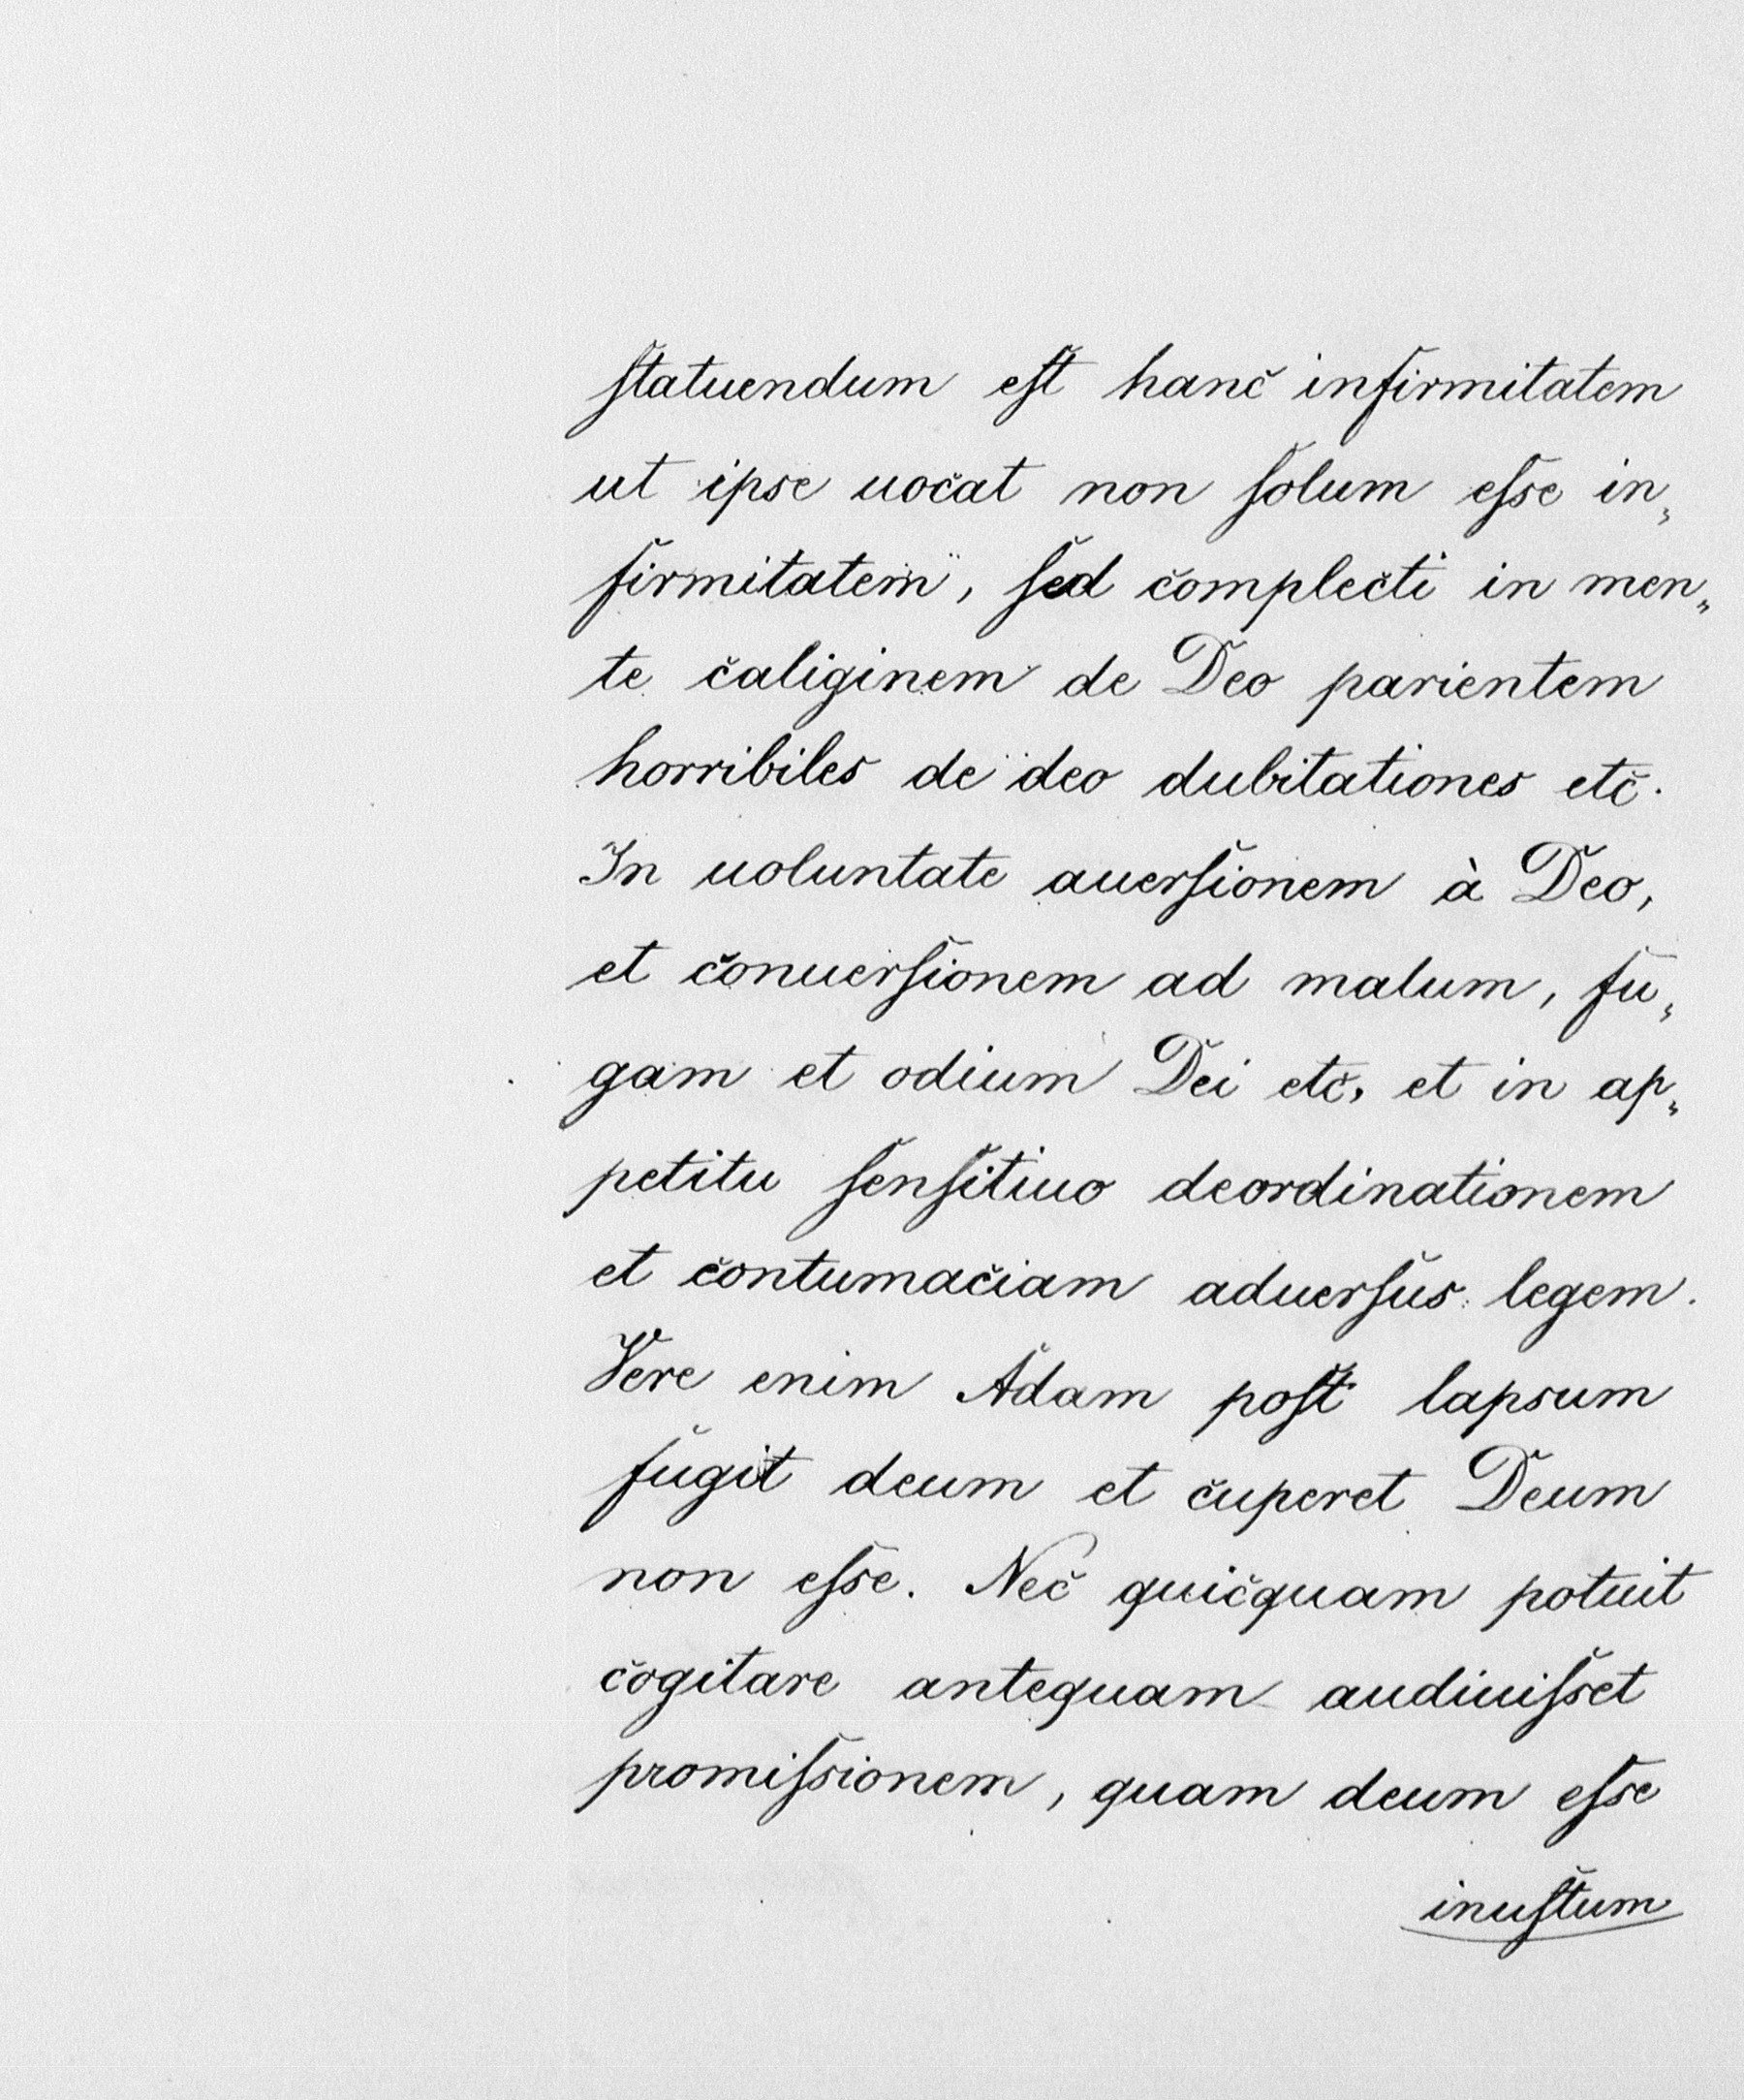 ſtatuendum eſt hanc infirmitatem
ut ipse uocat non ſolum eſse in„
firmitatem, ſed complecti in men„
te caliginem de Deo parientem
horribiles de deo dubitationes etc.
In uoluntate auerſionem à Deo,
et conuerſionem ad malum, fu„
gam et odium Dei etc, et in ap„
petitu ſenſitiuo deordinationem
et contumaciam aduerſus legem.
Vere enim Adam poſt lapsum
fugit deum et cuperet Deum
non eſse. Nec quicquam potuit
cogitare antequam audiuiſset
promiſsionem, quam deum eſse
inuſtum